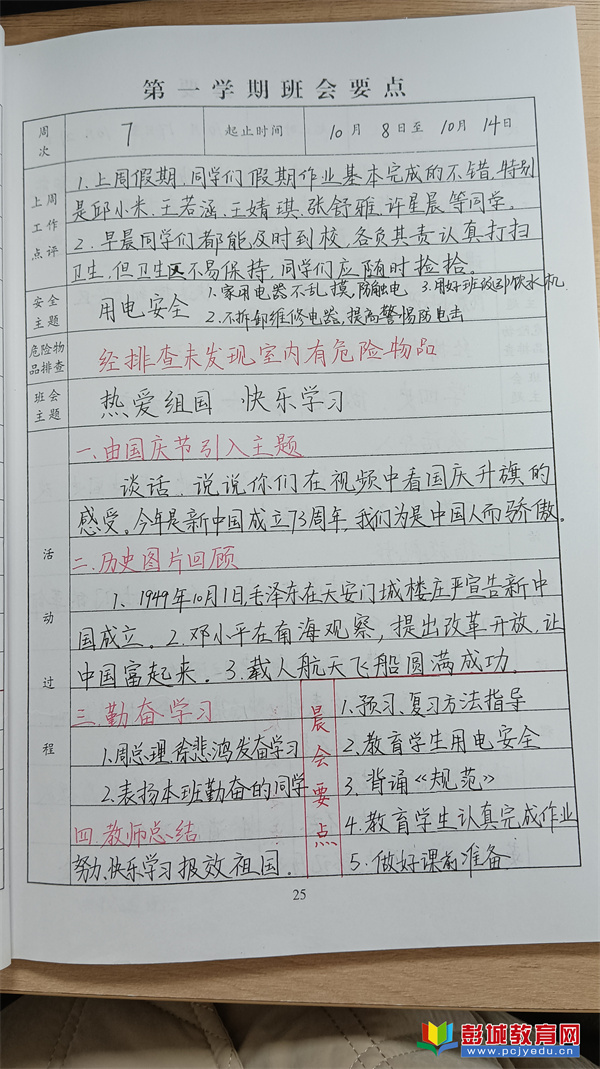 第一学期班会要点
周次 7 起止时间 10月8日至10月14日
上周工作点评
1.上周假期,同学们假期作业基本完成的不错.特别
是邱小米.王若涵.王婧琪.张舒雅.许星晨等同学。
2.早晨同学们都能及时到校,各负其责认真打扫
卫生,但卫生区不易保持,同学们应随时捡拾。
安全主题
用电安全
1.家用电器不乱摸,防触电 3.用好班级的饮水机
2.不拆卸维修电器,提高警惕防电击
危险物品排查
经排查未发现室内有危险物品
班会主题
热爱组国 快乐学习
活动过程
一.由国庆节引入主题
谈话.说说你们在视频中看国庆升旗的
感受。今年是新中国成立73周年,我们为是中国人而骄傲。
二.历史图片回顾
1、1949年10月1日,毛泽东在天安门城楼庄严宣告新中
国成立。2.邓小平在南海观察,提出改革开放,让
中国富起来。3.载人航天飞船圆满成功.
三.勤奋学习
1.周总理,徐悲鸿发奋学习
2.表扬本班勤奋的同学
四.教师总结
努力,快乐学习报效祖国.
晨会要点
1.预习、复习方法指导
2.教育学生用电安全
3.背诵《规范》
4.教育学生认真完成作业
5.做好课前准备
25
彭城教育网
www.pcjyedu.cn